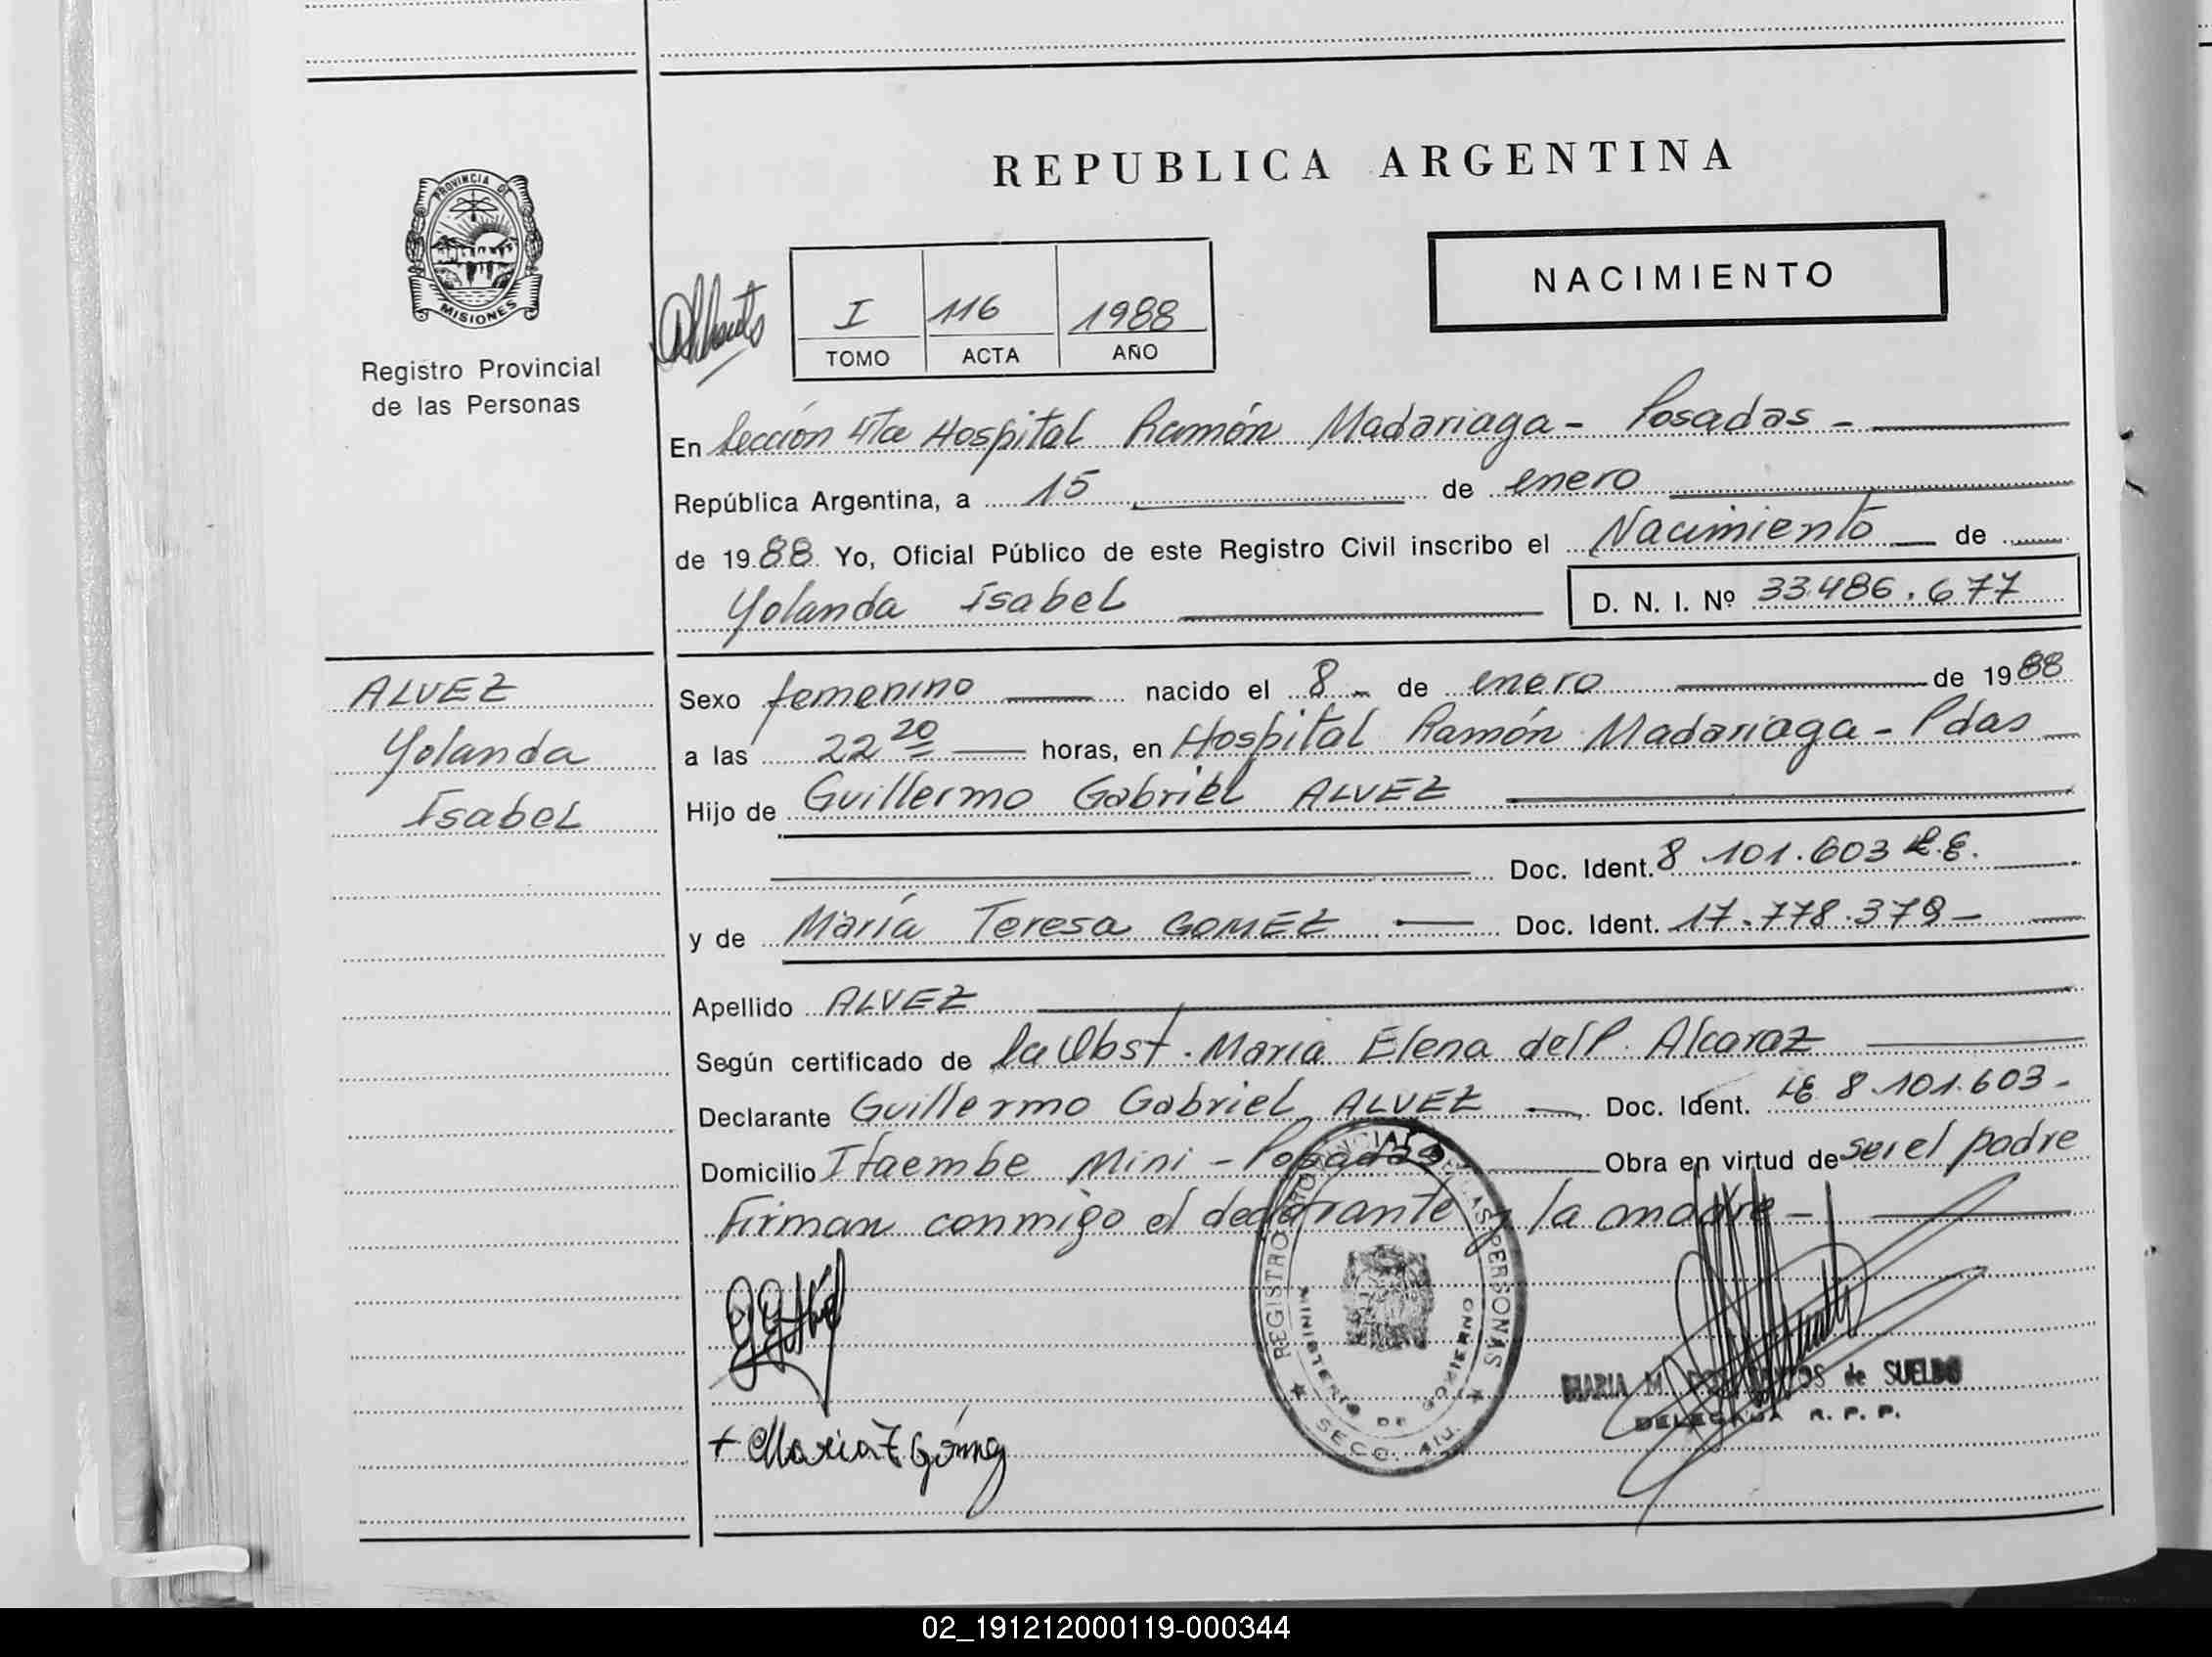 REPUBLICA ARGENTINA
PROVINCIA DE
MISIONES
Registro Provincial
de las Personas
I 116 1988
TOMO ACTA AÑO
NACIMIENTO
En Sección 4Ta Hospital Ramón Madariaga - Posadas -
República Argentina, a 15 de enero
de 1988 Yo, Oficial Público de este Registro Civil inscribo el Nacimiento de
Yolanda Isabel D. N. I. Nº 33.486.677
ALVEZ
Yolanda
Isabel
Sexo femenino nacido el 8 - de enero de 1988
a las 22 20 horas, en Hospital Ramón Madariaga - Pdas
Hijo de Guillermo Gabriel ALVEZ
Doc. Ident. 8.101.603 L.E.
y de María Teresa GOMEZ Doc. Ident. 17.778.379 -
Apellido ALVEZ
Según certificado de la Obst. Maria Elena del P. Alcaraz
Declarante Guillermo Gabriel ALVEZ Doc. Ident. LE 8.101.603 -
Domicilio Itaembe Mini - Posadas Obra en virtud de ser el padre
Firman conmigo el declarante y la madre -
REGISTRO PROVINCIAL DE LAS PERSONAS
MINISTERIO DE GOBIERNO
SECC. 4ta.
MARIA M. DOS SANTOS de SUELDO
DELEGADA R. P. P.
+ Maria T Gómez
02_191212000119-000344